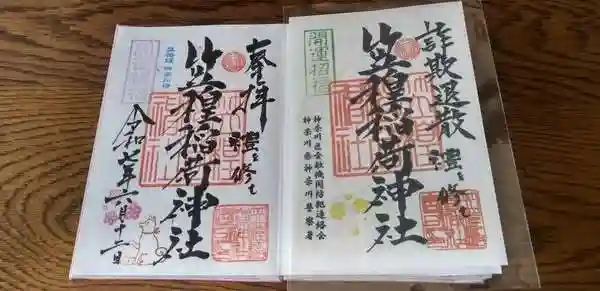 詐欺退散
禮を修む
笠𥻘稲荷神社
開運招福
神奈川区金融機関防犯連絡会
神奈川県神奈川警察署
奉拝
禮を修む
笠𥻘稲荷神社
令和七年六月十二日